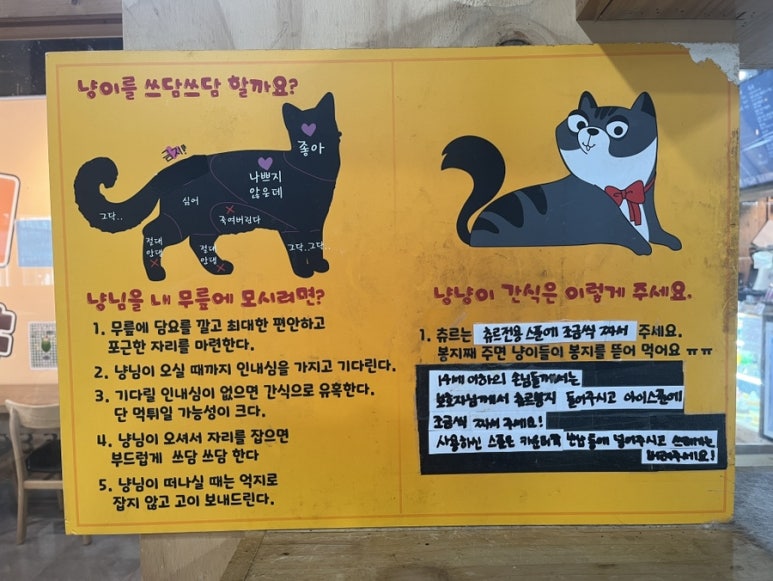 냥이를 쓰담쓰담 할까요?
금지?
좋아
나쁘지
않은데
싫어
죽여버린다
그닥..
절대
안대
절대
안대
그닥.그닥..
냥님을 내 무릎에 모시려면?
1. 무릎에 담요를 깔고 최대한 편안하고
포근한 자리를 마련한다.
2. 냥님이 오실 때까지 인내심을 가지고 기다린다.
3. 기다릴 인내심이 없으면 간식으로 유혹한다.
단 먹튀일 가능성이 크다.
4. 냥님이 오셔서 자리를 잡으면
부드럽게 쓰담 쓰담 한다
5. 냥님이 떠나실 때는 억지로
잡지 않고 고이 보내드린다.
냥냥이 간식은 이렇게 주세요.
1. 츄르는 츄르전용 스푼에 조금씩 짜서 주세요.
봉지째 주면 냥이들이 봉지를 뜯어 먹어요 ㅠㅠ
14세 이하의 손님들께서는
보호자님께서 츄르봉지 들어주시고 아이스푼에
조금씩 짜서 주세요!
사용하신 스푼은 카운터쪽 통에 넣어주시고 쓰레기는
버려주세요!